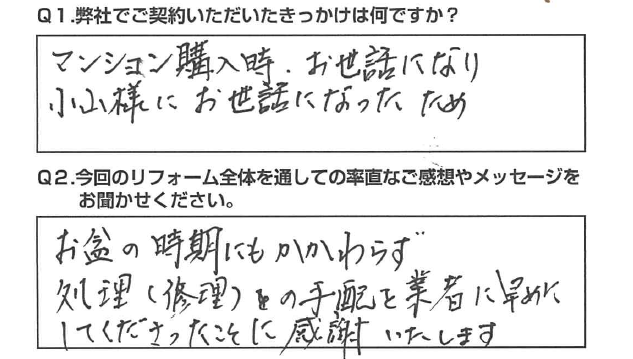 Q1.弊社でご契約いただいたきっかけは何ですか？
マンション購入時、お世話になり
小山様に お世話になった ため
Q2.今回のリフォーム全体を通しての率直なご感想やメッセージを
お聞かせください。
お盆の時期にもかかわらず
処理(修理)の手配を業者に早めに
してくださったことに感謝いたします